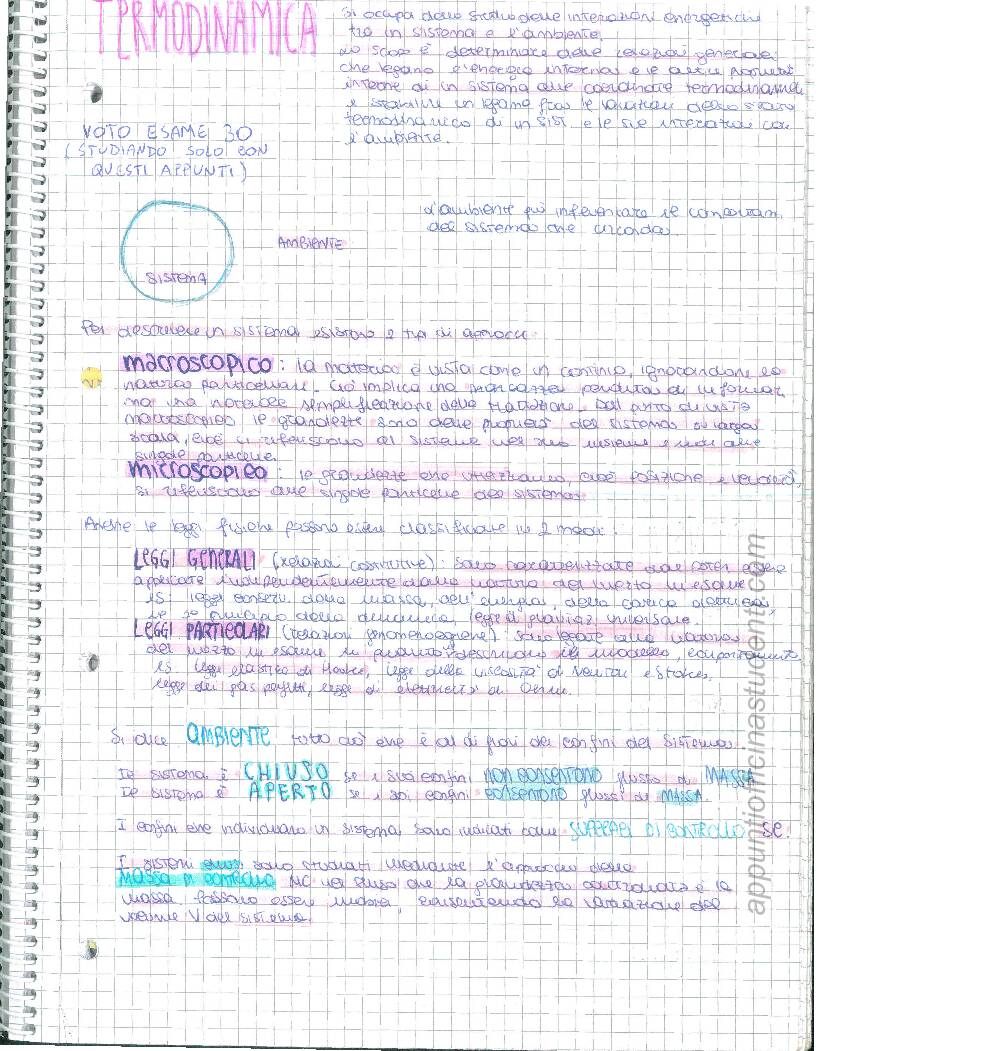 TERMODINAMICA
Si occupa dello studio delle interazioni energetiche
tra un sistema e l'ambiente.
Lo scopo è determinare delle relazioni generali
che legano l'energia interna e le altre proprietà
interne di un sistema alle coordinate termodinamiche
e stabilire un legame fra le variazioni dello stato
termodinamico di un SIST. e le sue interazioni con
l'ambiente.
VOTO ESAME 30
(STUDIANDO SOLO CON
QUESTI APPUNTI)
L'ambiente può influenzare il
del sistema che circonda.
AMBIENTE
SISTEMA
Per descrivere un sistema esistono 2 tipi di approcci:
macroscopico: la materia è vista come un continuo, ignorandone la
natura particellare. Ciò implica una perdita di informaz.
ma una notevole semplificazione della trattazione. Dal punto di vista
macroscopico le grandezze sono delle proprietà del sistema su larga
scala, cioè si riferiscono al sistema nel suo insieme e non alle
singole particelle.
microscopico: le grandezze che utilizziamo, cioè posizione e velocità,
si riferiscono alle singole particelle del sistema.
Anche le leggi fisiche possono essere classificate in 2 modi:
LEGGI GENERALI (relazioni costitutive): sono caratterizzate dal poter essere
applicate indipendentemente dalla natura del mezzo in esame
ES: leggi conserv. della massa, dell'energia, della carica elettrica,
il 2° principio della dinamica, legge di gravitaz. universale.
LEGGI PARTICOLARI (relazioni fenomenologiche): sono legate alla natura
del mezzo in esame in quanto descrivono il modello, comportamento
ES. legge elastica di Hooke, legge della viscosità di Newton e Stokes,
legge dei gas perfetti, legge di elettricità di Ohm.
Si dice AMBIENTE tutto ciò che è al di fuori dei confini del sistema.
Il sistema è CHIUSO se i suoi confini NON CONSENTONO flusso di MASSA
Il sistema è APERTO se i suoi confini CONSENTONO flussi di MASSA.
I confini che individuano un sistema sono indicati come SUPERFICI DI CONTROLLO SC.
I sistemi chiusi sono studiati mediante l'approccio della
MASSA DI CONTROLLO MC nel senso che la grandezza controllata è la
massa. Possono essere mobili, consentendo la variazione del
volume V del sistema.
appuntiofficinastudenti.com